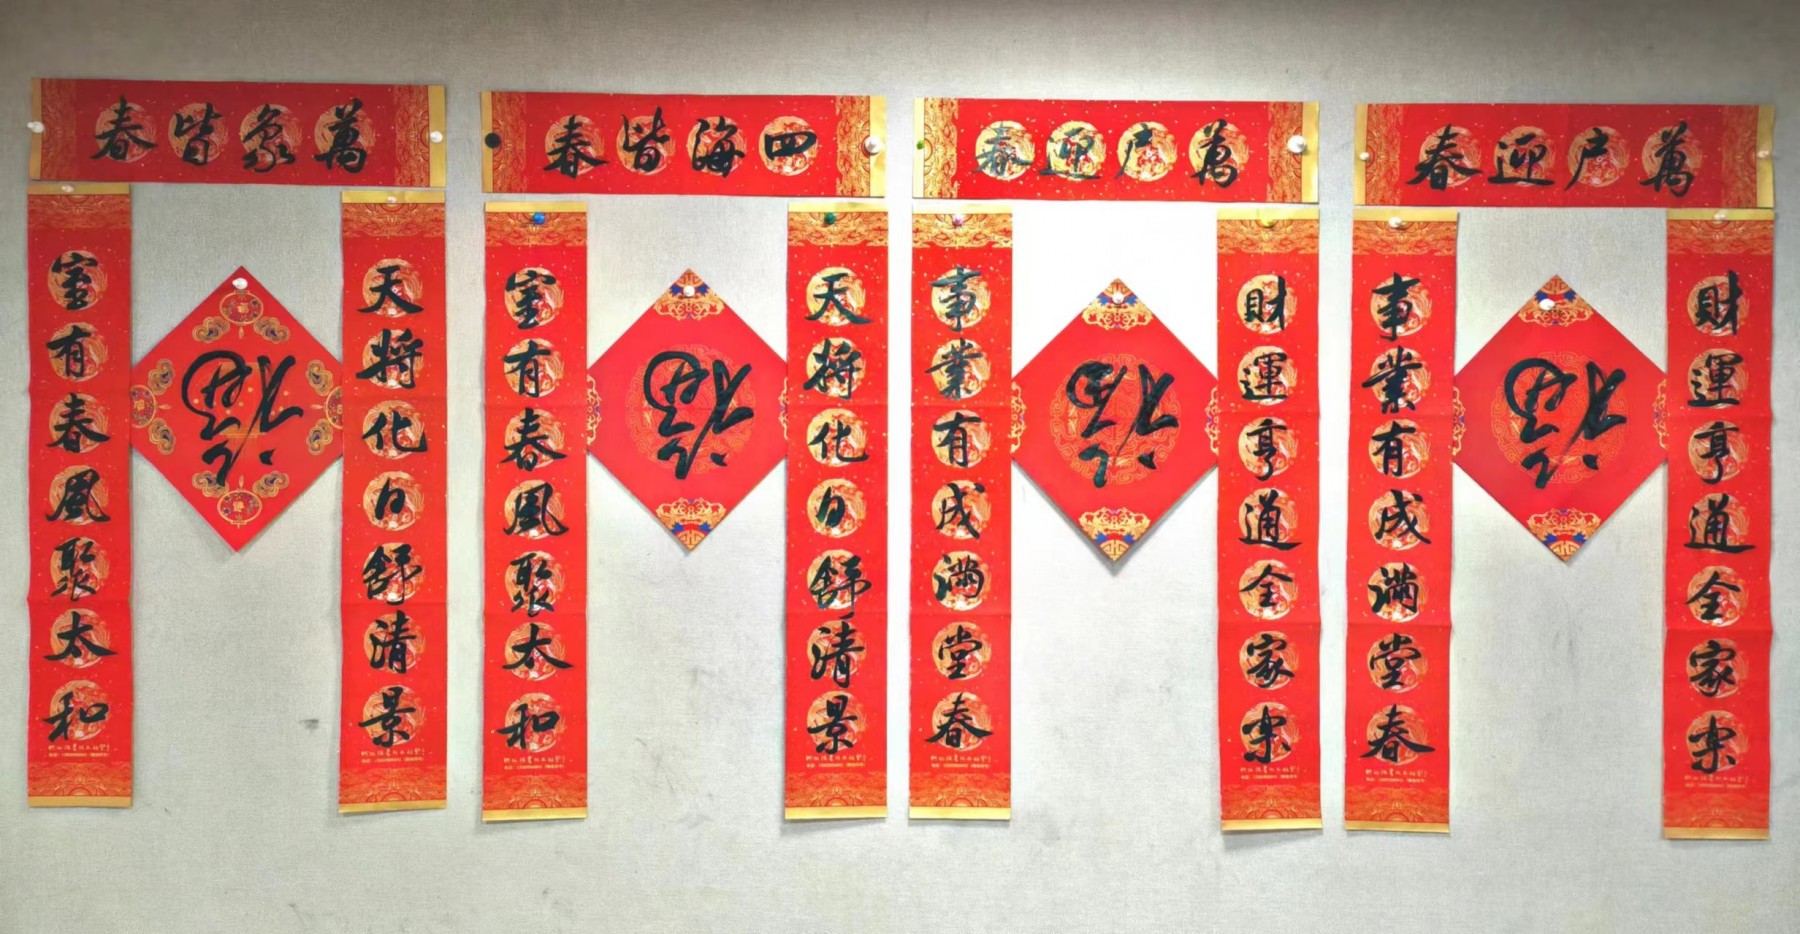 萬象皆春
天将化日舒清景
福
室有春風聚太和
四海皆春
天将化日舒清景
福
室有春風聚太和
萬户迎春
財運亨通全家樂
福
事業有成滿堂春
萬户迎春
財運亨通全家樂
福
事業有成滿堂春